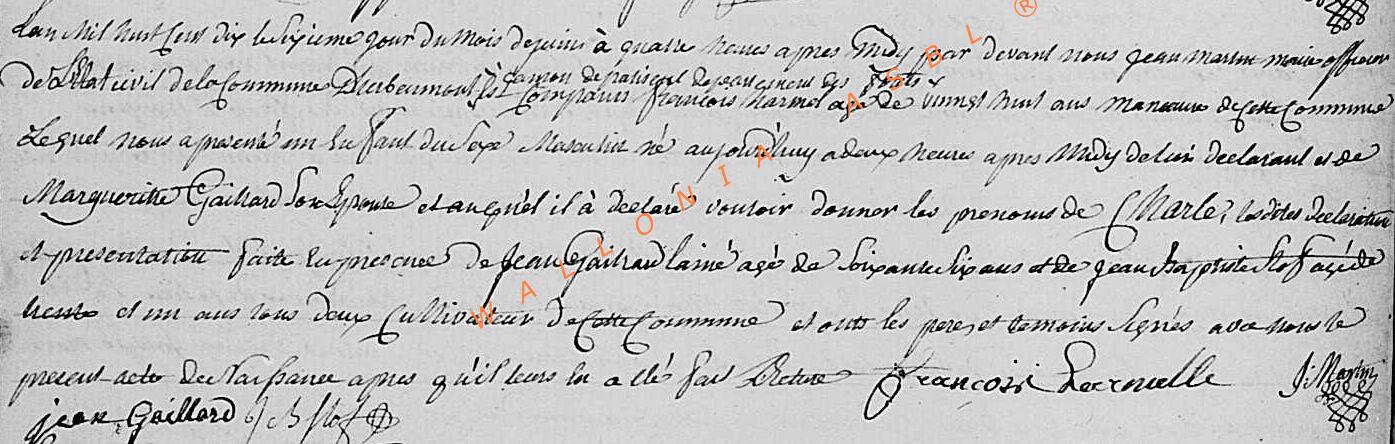 Lan Mil huit Cent dix le Sixieme jour du Mois de juin à quatre heures apres Midy par devant nous jean martin maire officier
de L'Etat civil de la Commune D'herbeumont canton de département des forêts
Est Comparus françois age de vinngt huit ans manœuvre de cette Commune
Lequel nous a presenté un Enfant du Sexe Masculin né aujourd'huy a deux heures apres Midy de luy declarant et de
Margueritte Gaillard Son Epouse et auquel il à declaré vouloir donner les prenoms de CHarle, les dites declaration
et presentation faitte En presence de Jean Gaillard lainé agé de Soixante Six ans et de jean Baptiste Slof agé de
trente et un ans tous deux Cultivateur de Cette Commune et onts les pere, et temoins Signés avec nous le
present acte de Naissance apres qu'il leurs En a été fait Lecture françois J: Martin
jean Gaillard J B Slof
WALLONIA ASBL ®